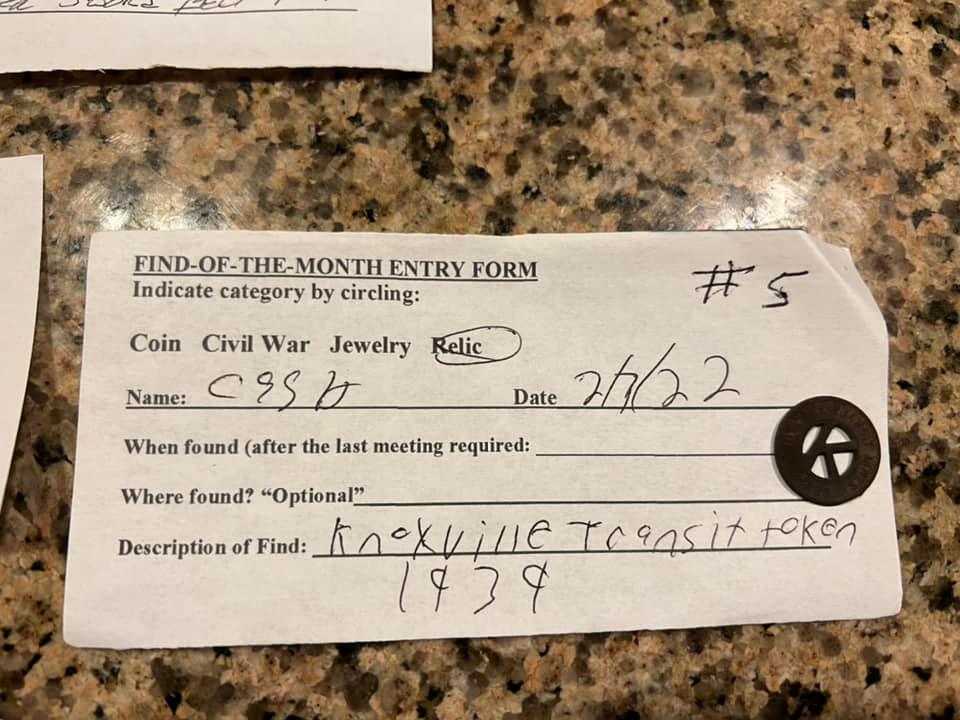 FIND-OF-THE-MONTH ENTRY FORM
# 5
Indicate category by circling:
Coin Civil War Jewelry Relic
Name: Cash Date 2/7/22
When found (after the last meeting required:
Where found? “Optional”
Description of Find: Knoxville Transit token
1939